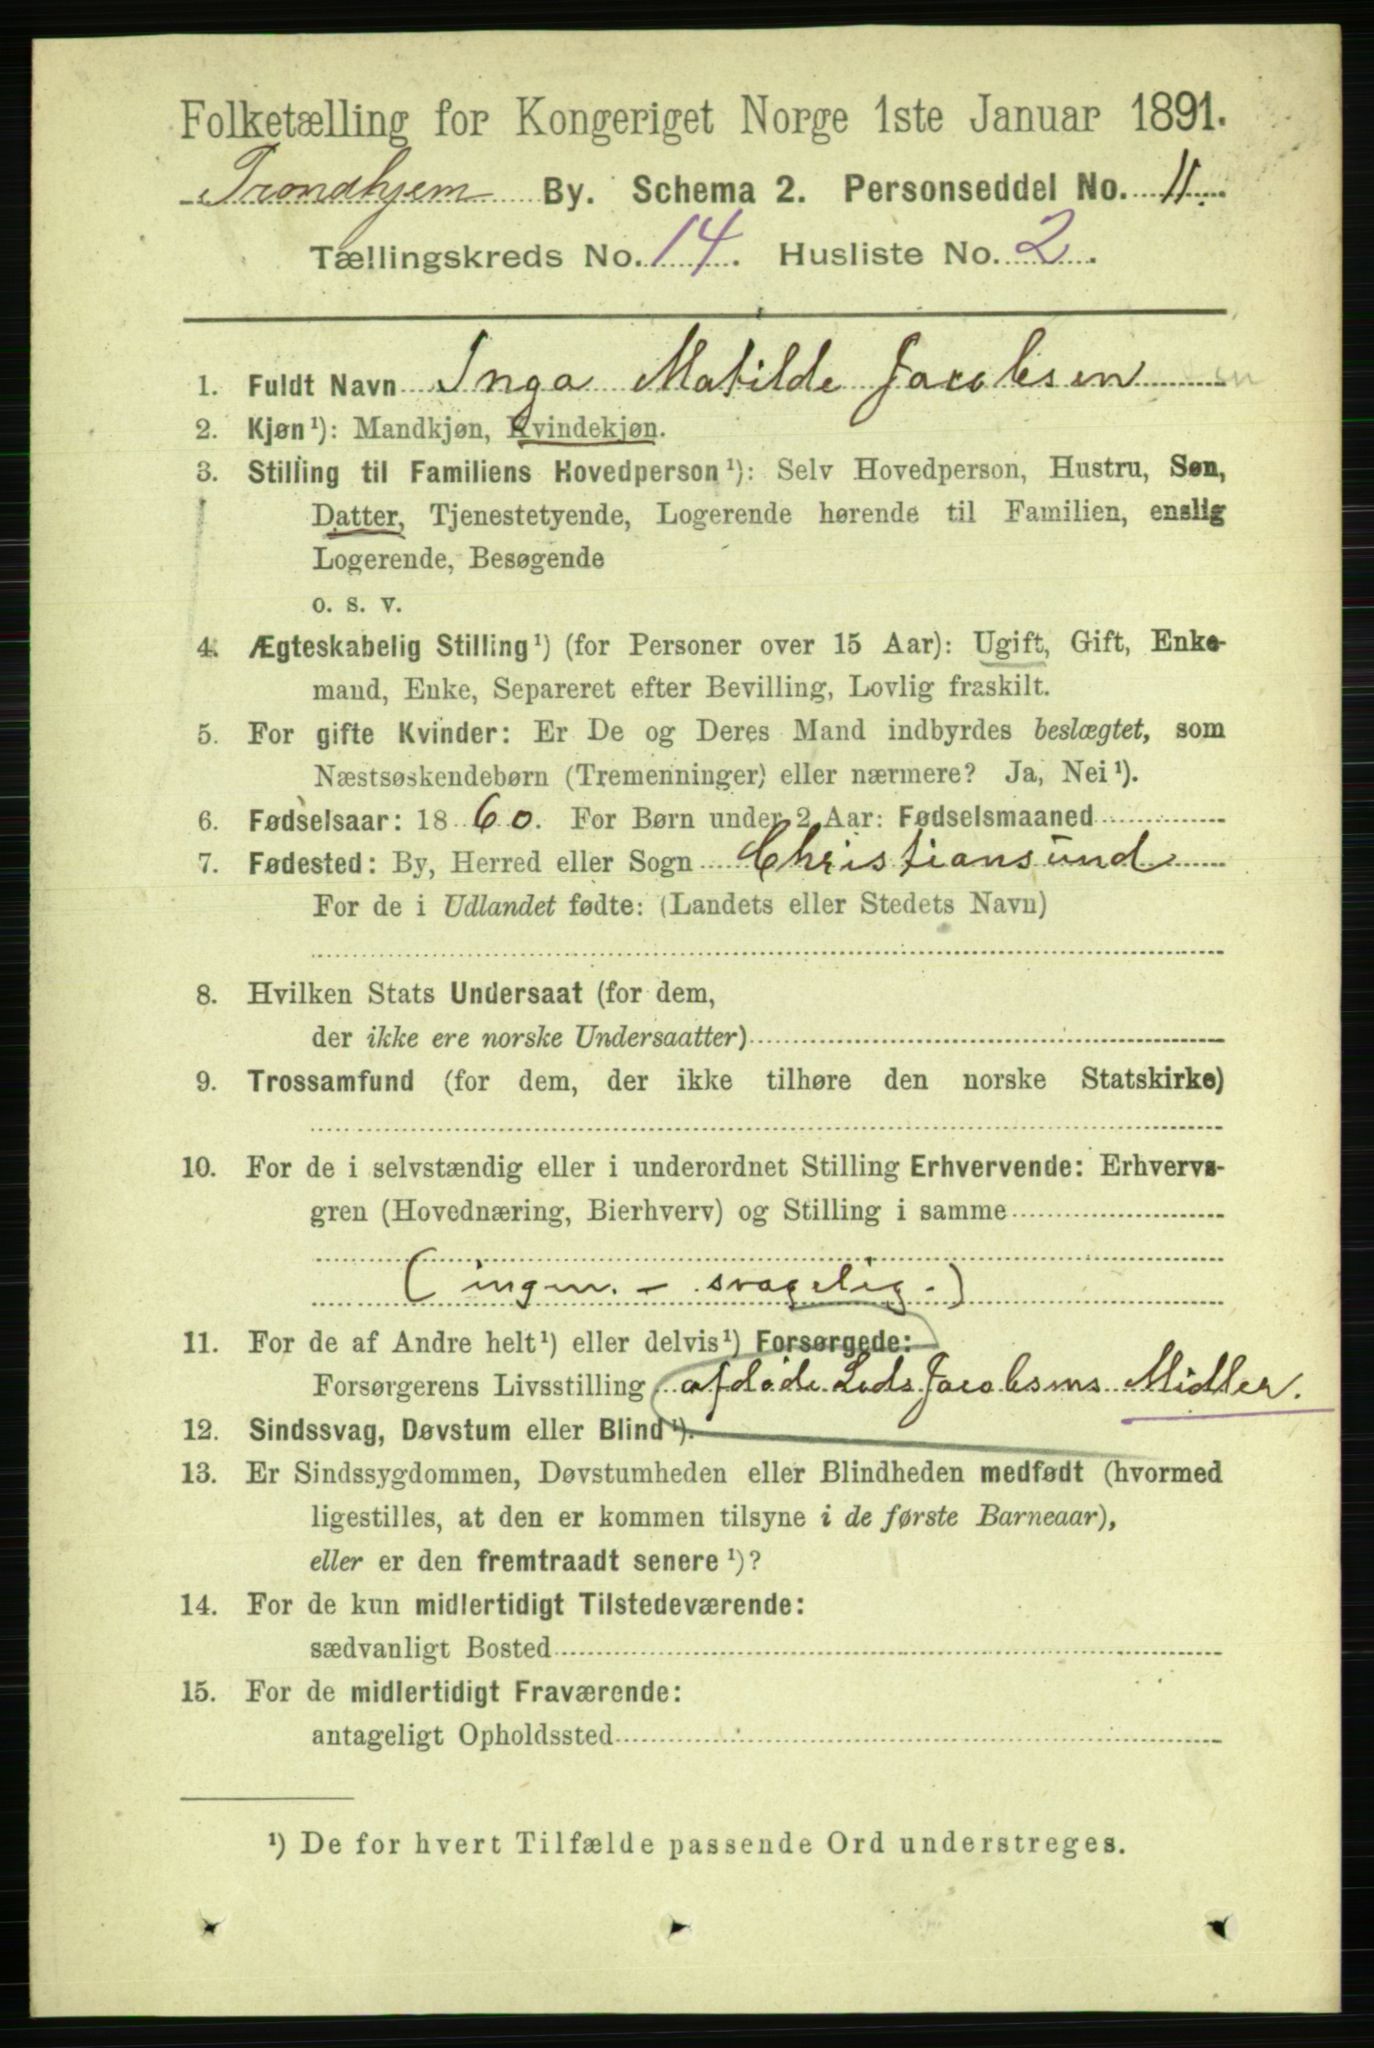 Folketælling for Kongeriget Norge 1ste Januar 1891.
Trondhjem By. Schema 2. Personseddel No. 11.
Tællingskreds No. 14. Husliste No. 2.
1. Fuldt Navn Inga Matilde Jacobsen
2. Kjøn¹): Mandkjøn, Kvindekjøn.
3. Stilling til Familiens Hovedperson¹): Selv Hovedperson, Hustru, Søn,
Datter, Tjenestetyende, Logerende hørende til Familien, enslig
Logerende, Besøgende
o. s. v.
4. Ægteskabelig Stilling¹) (for Personer over 15 Aar): Ugift, Gift, Enke-
mand, Enke, Separeret efter Bevilling, Lovlig fraskilt.
5. For gifte Kvinder: Er De og Deres Mand indbyrdes beslægtet, som
Næstsøskendebørn (Tremenninger) eller nærmere? Ja, Nei¹).
6. Fødselsaar: 1860. For Børn under 2 Aar: Fødselsmaaned
7. Fødested: By, Herred eller Sogn Christiansund
For de i Udlandet fødte: (Landets eller Stedets Navn)
8. Hvilken Stats Undersaat (for dem,
der ikke ere norske Undersaatter)
9. Trossamfund (for dem, der ikke tilhøre den norske Statskirke)
10. For de i selvstændig eller i underordnet Stilling Erhvervende: Erhvervs-
gren (Hovednæring, Bierhverv) og Stilling i samme
(ingen. - svagelig.)
11. For de af Andre helt¹) eller delvis¹) Forsørgede:
Forsørgerens Livsstilling afdøde Jacobsens Midler.
12. Sindssvag, Døvstum eller Blind¹).
13. Er Sindssygdommen, Døvstumheden eller Blindheden medfødt (hvormed
ligestilles, at den er kommen tilsyne i de første Barneaar),
eller er den fremtraadt senere¹)?
14. For de kun midlertidigt Tilstedeværende:
sædvanligt Bosted
15. For de midlertidigt Fraværende:
antageligt Opholdssted
¹) De for hvert Tilfælde passende Ord understreges.